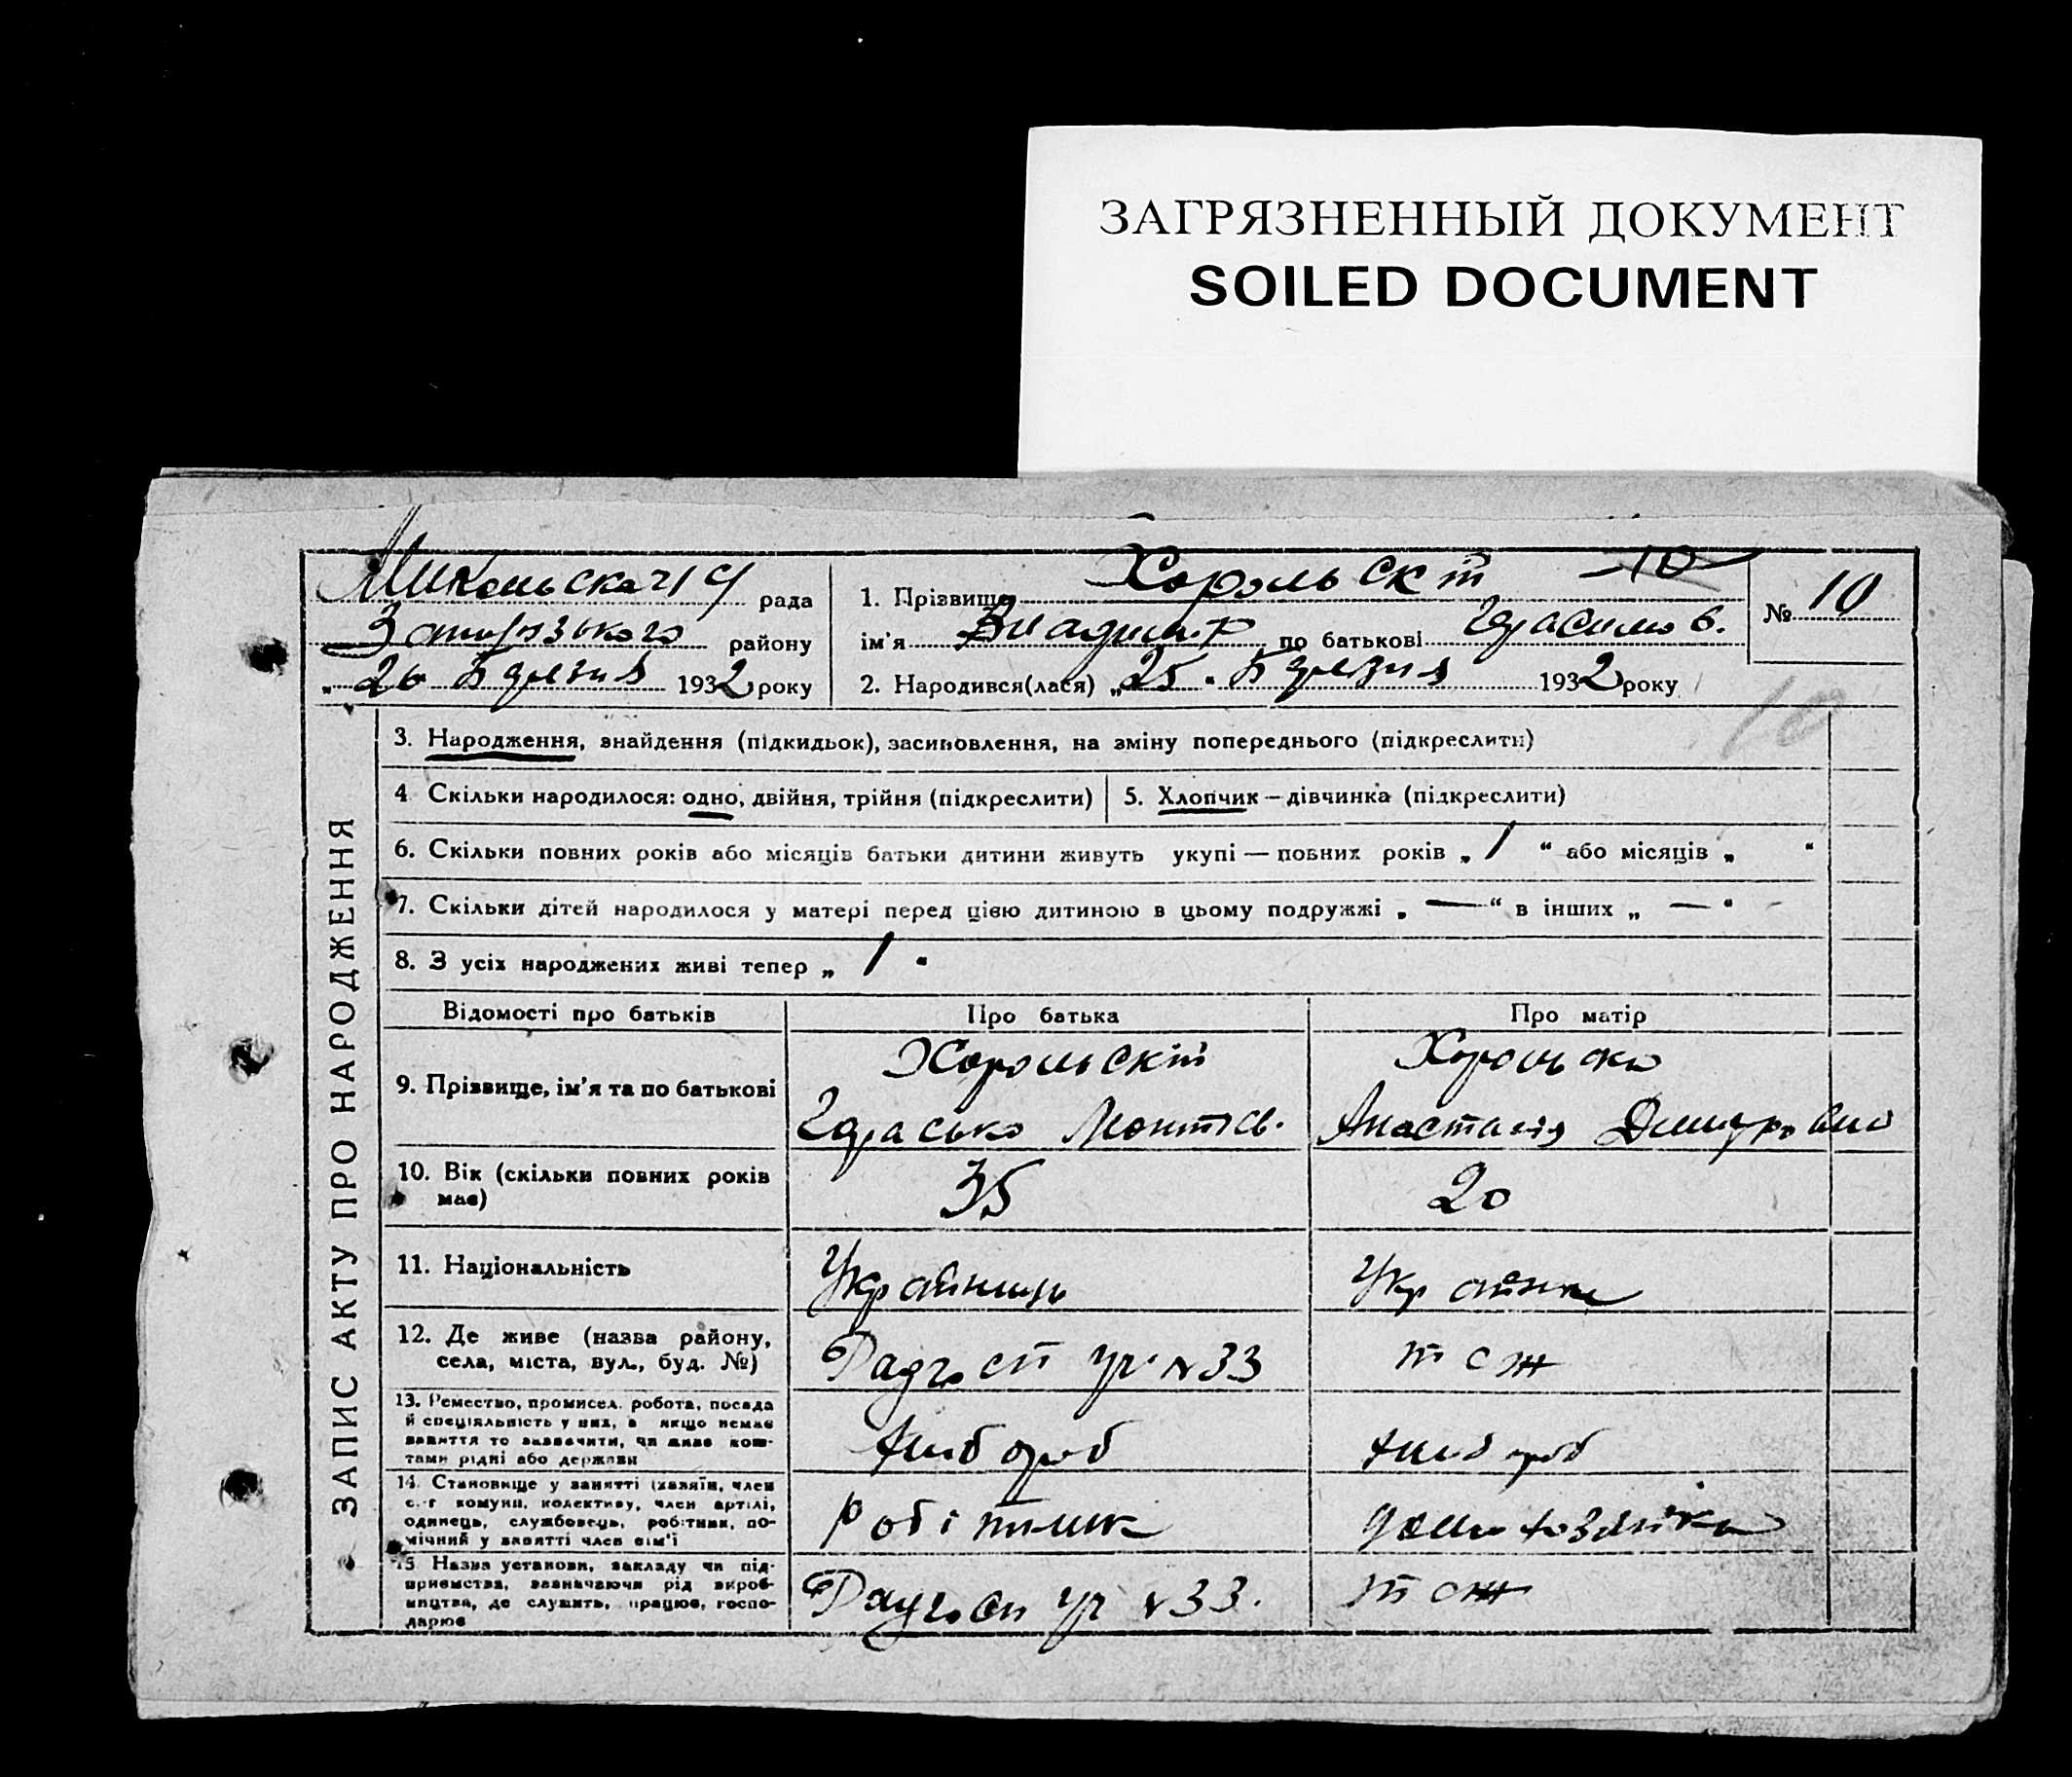 ЗАГРЯЗНЕННЫЙ ДОКУМЕНТ
SOILED DOCUMENT
рада
району
„ 26 Березня 1932 року
1. Прізвище Хорольскій 10
ім'я Владимір по батькові Герасимов.
2. Народився(лася) „25. Березня 1932 року
№ 10
10
ЗАПИС АКТУ ПРО НАРОДЖЕННЯ
3. Народження, знайдення (підкидьок), засиновлення, на зміну попереднього (підкреслити)
4 Скільки народилося: одно, двійня, трійня (підкреслити)
5. Хлопчик — дівчинка (підкреслити)
6. Скільки повних років або місяців батьки дитини живуть укупі — повних років „ 1 “ або місяців „ “
7. Скільки дітей народилося у матері перед цією дитиною в цьому подружжі „ — “ в інших „ — “
8. З усіх народжених живі тепер „ 1 “
Відомості про батьків
Про батька
Про матір
9. Прізвище, ім'я та по батькові
Хорольскій
Хорольска
Анастасія Дмитровна
10. Вік (скільки повних років має)
35
20
11. Національність
Українець
Українка
12. Де живе (назва району,
села, міста, вул., буд. №)
Радгосп уч. № 33
тож
13. Ремество, промисел, робота, посада
й спеціяльність у них, а якщо немає
заняття то зазначити, чи живе кош-
тами рідні або держави
Хлібороб
Хлібороб
14. Становище у занятті (хазяїн, член
с.-г комуни, колективу, член артілі,
одинець, службовець, робітник, по-
мічний у занятті член сім'ї
Робітник
домохозяйка
15 Назва установи, закладу чи під-
приємства, зазначаючи рід вироб-
ництва, де служить, працює, госпо-
дарює
Радгосп уч № 33.
тож